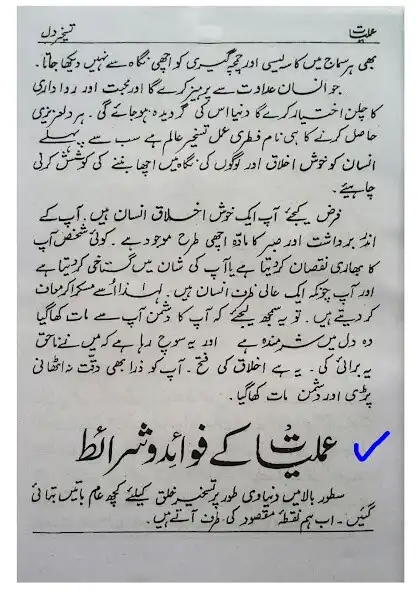 عملیات
تسخیر دل
بھی ہر سماج میں کاسہ لیسی اور چمچہ گیری کو اچھی نگاہ سے نہیں دیکھا جاتا۔
جو انسان عداوت سے پرہیز کرے گا اور محبت اور رواداری
کا چلن اختیار کرے گا دنیا اس کی گرویدہ ہو جائے گی۔ ہر دلعزیزی
حاصل کرنے کا ہی نام فطری عمل تسخیر عالم ہے سب سے پہلے
انسان کو خوش اخلاق اور لوگوں کی نگاہ میں اچھا بننے کی کوشش کرنی
چاہیئے۔
فرض کیجئے آپ ایک خوش اخلاق انسان ہیں۔ آپ کے
اندر برداشت اور صبر کا مادہ اچھی طرح موجود ہے۔ کوئی شخص آپ
کا بھاری نقصان کر دیتا ہے یا آپ کی شان میں گستاخی کر دیتا ہے
اور آپ چونکہ ایک عالی ظرف انسان ہیں۔ لہٰذا اُسے مسکرا کر معاف
کر دیتے ہیں۔ تو یہ سمجھ لیجئے کہ آپ کا دشمن آپ سے مات کھا گیا
وہ دل میں شرمندہ ہے اور یہ سوچ رہا ہے کہ میں نے ناحق
یہ برائی کی۔ یہ ہے اخلاق کی فتح۔ آپ کو ذرا بھی دقّت نہ اٹھانی
پڑی اور دشمن مات کھا گیا۔
عملیات کے فوائد و شرائط
سطور بالا میں دنیاوی طور پر تسخیر خلق کیلئے کچھ عام باتیں بتائی
گئیں۔ اب ہم نقطۂ مقصود کی طرف آتے ہیں۔